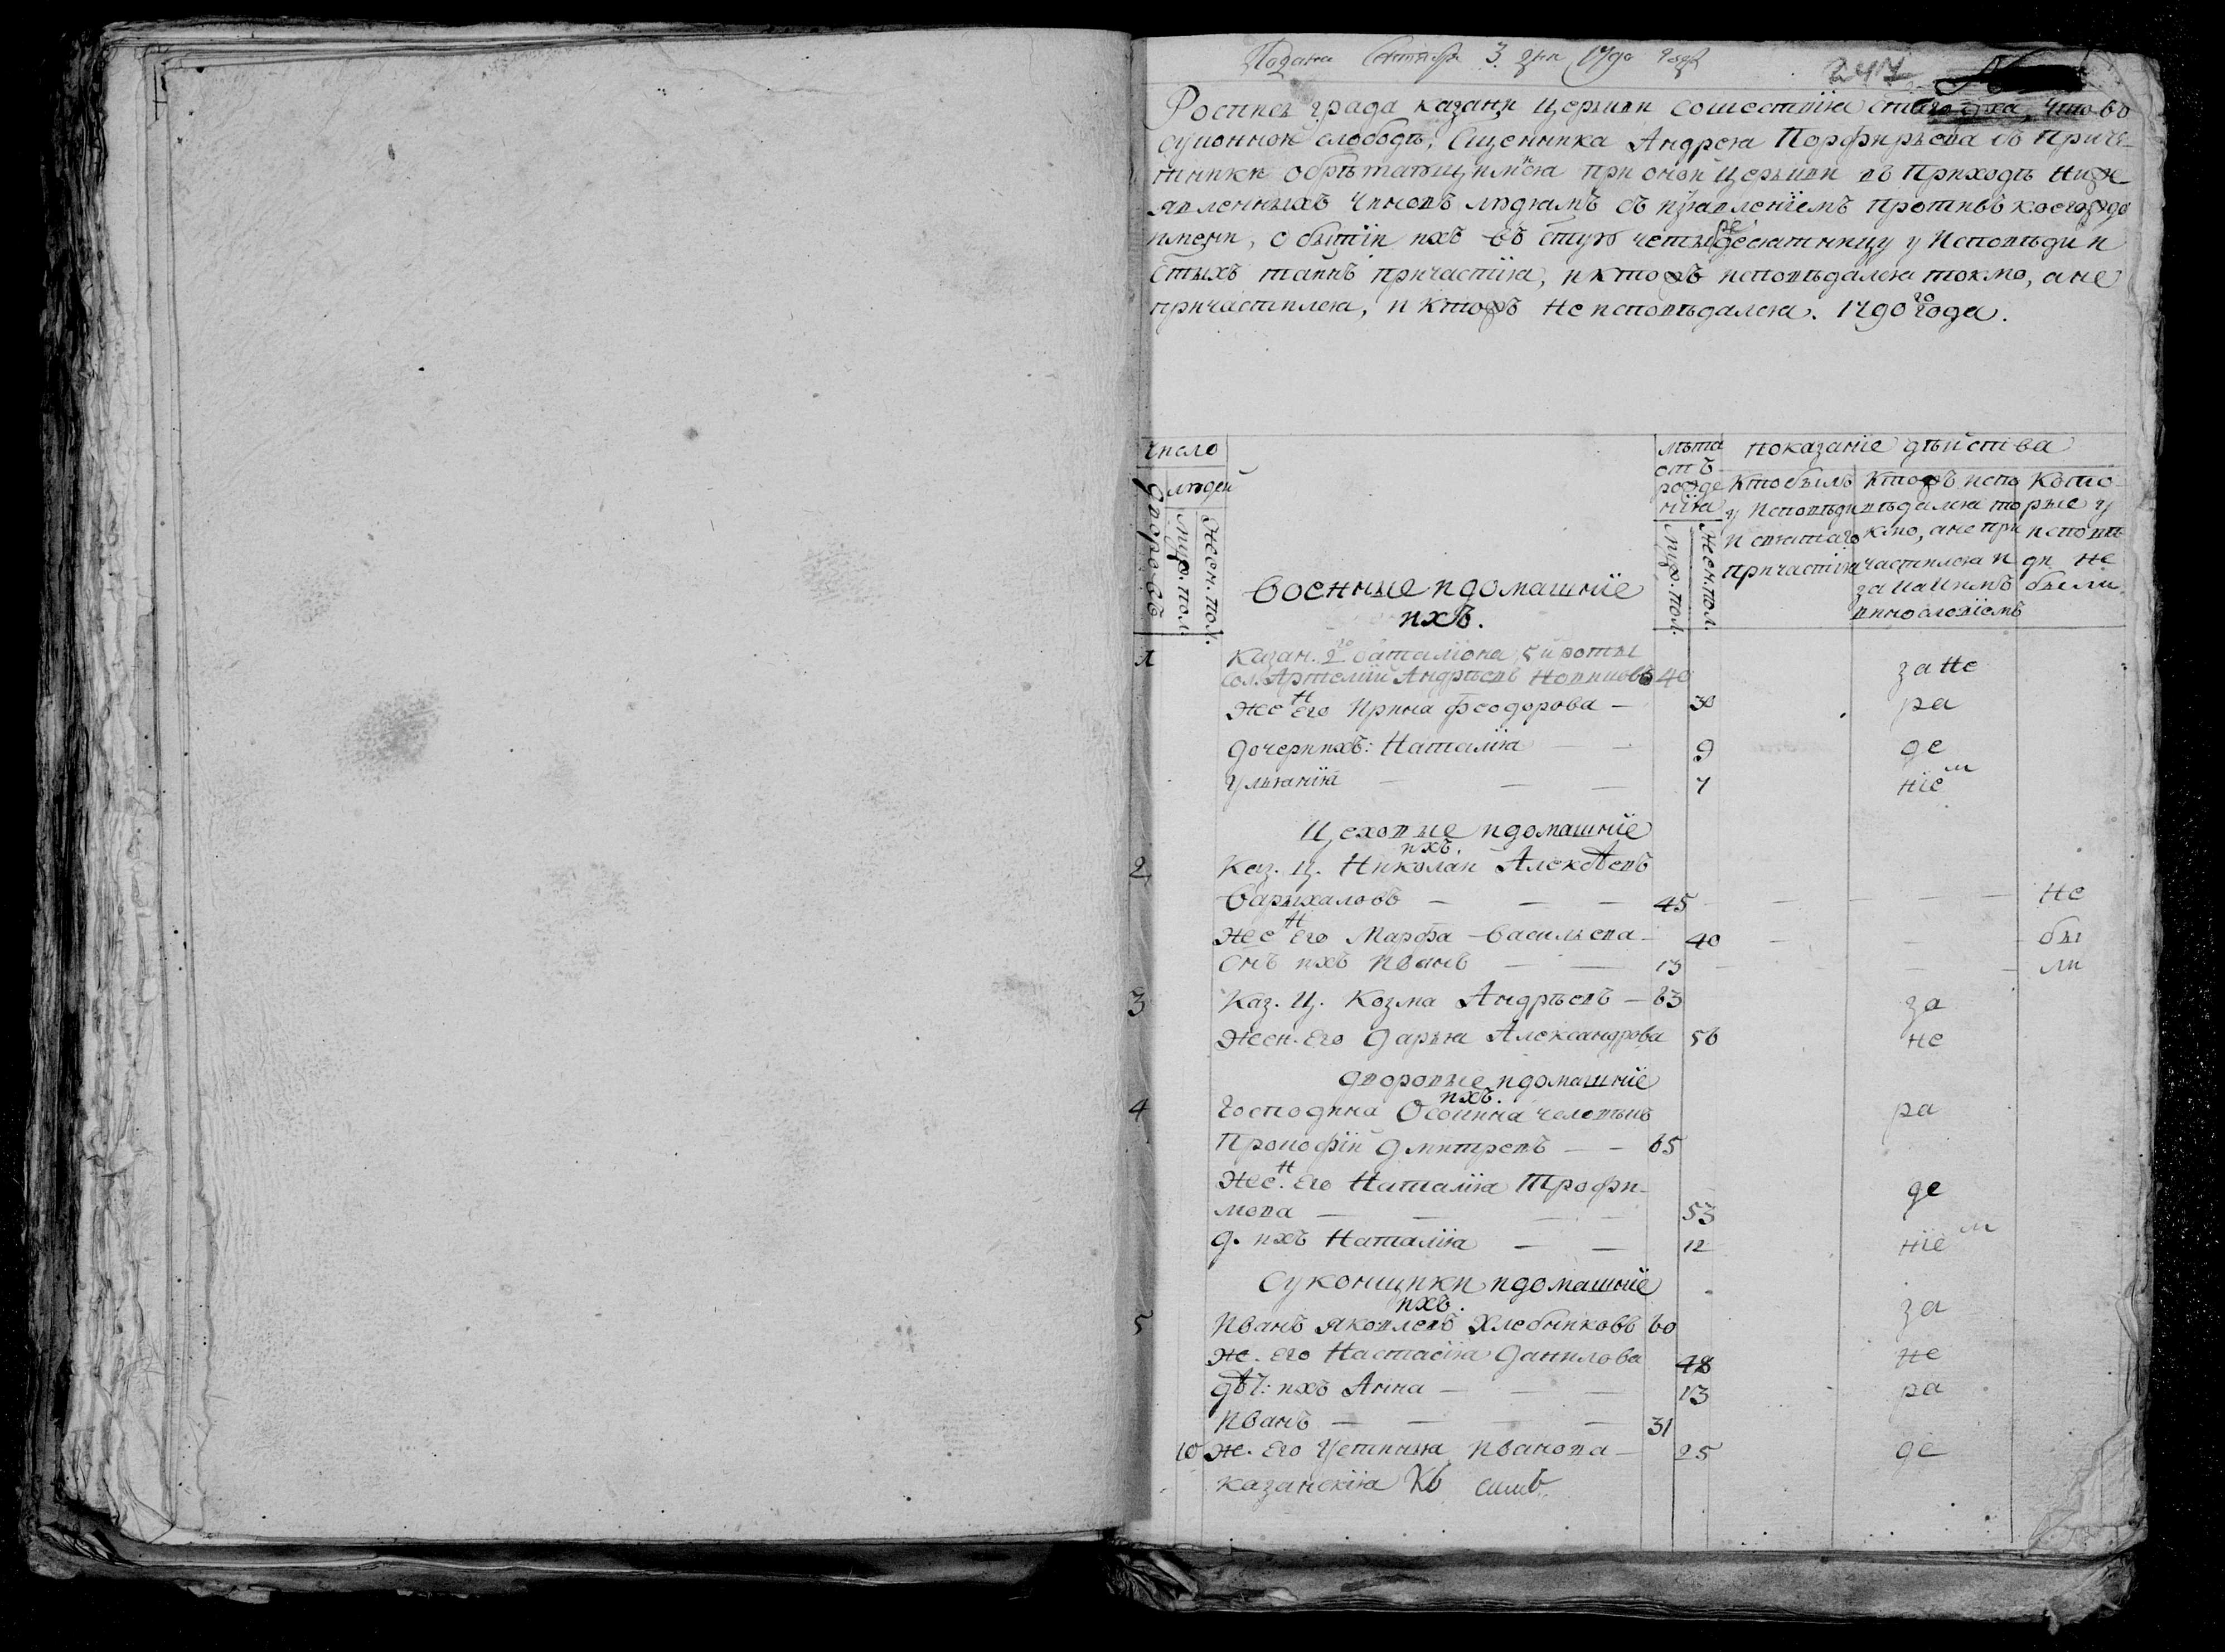 Подана Сентября 3 дня 1790 года
247
Роспись града казани церкви сошествия стаго дха, что во
суконной слободѣ, Сщенника Андрея Порфирьева съ приче-
тники обрѣтающимися при оной церкви въ приходѣ ниже
явленныхъ чиновъ людямъ съ изъявленіемъ противъ коегождо
имени, о бытіи ихъ въ стую четыредесятницу у Исповѣди и
стыхъ таинъ причастія, и ктожъ исповѣдался токмо, а не
причастился, и ктожъ не исповѣдался. 1790го года.
число
дворовъ
людей
Муж. пол.
Жен. пол.
военные и домашніе
ихъ.
лѣта
отъ
рожде
нія
муж. пол.
жен. пол.
показаніе дѣйства
Кто былъ
у Исповѣди
и святаго
причастія
Ктожъ испо
вѣдался то
кмо, а не при
частился и
за какимъ
винословіемъ
Кото
рые у
исповѣ
ди не
были
1 Казан. 2го баталіона 5й роты
сол. Артемій Андрѣевъ Новиковъ 40 за не
Жен Его Ирина феодорова — 30 ра
дочери ихъ: Наталія — — 9 де
Ульянія — — — 7 ніем
Цеховые и домашніе
ихъ.
2 Каз. Ц. Николай Алексѣевъ
варыхаловъ — — — 45 — — — — Не
Жен Его Марфа васильева — 40 — — бы
Снъ ихъ Иванъ — — 13 — — — — ли
3 Каз. Ц. Козма Андрѣевъ — 63 за
Жен. Его Дарья Александрова 56 не
дворовые и домашніе
ихъ.
4 Господина Осокина человѣкъ ра
Прокофій Дмитревъ — — 65
Жен. Его Наталія Трофи- де
мова — — — — 53
д. ихъ Наталія — — 12 ніем
Суконщики и домашніе
ихъ. за
5 Иванъ Яковлевъ Хлебниковъ 60
Же. его Настасія Данилова 48 не
дѣт: ихъ Анна — — — 13 ра
Иванъ — — — — 31
10 Же. Его Устинья Иванова — 25 де
казанскія